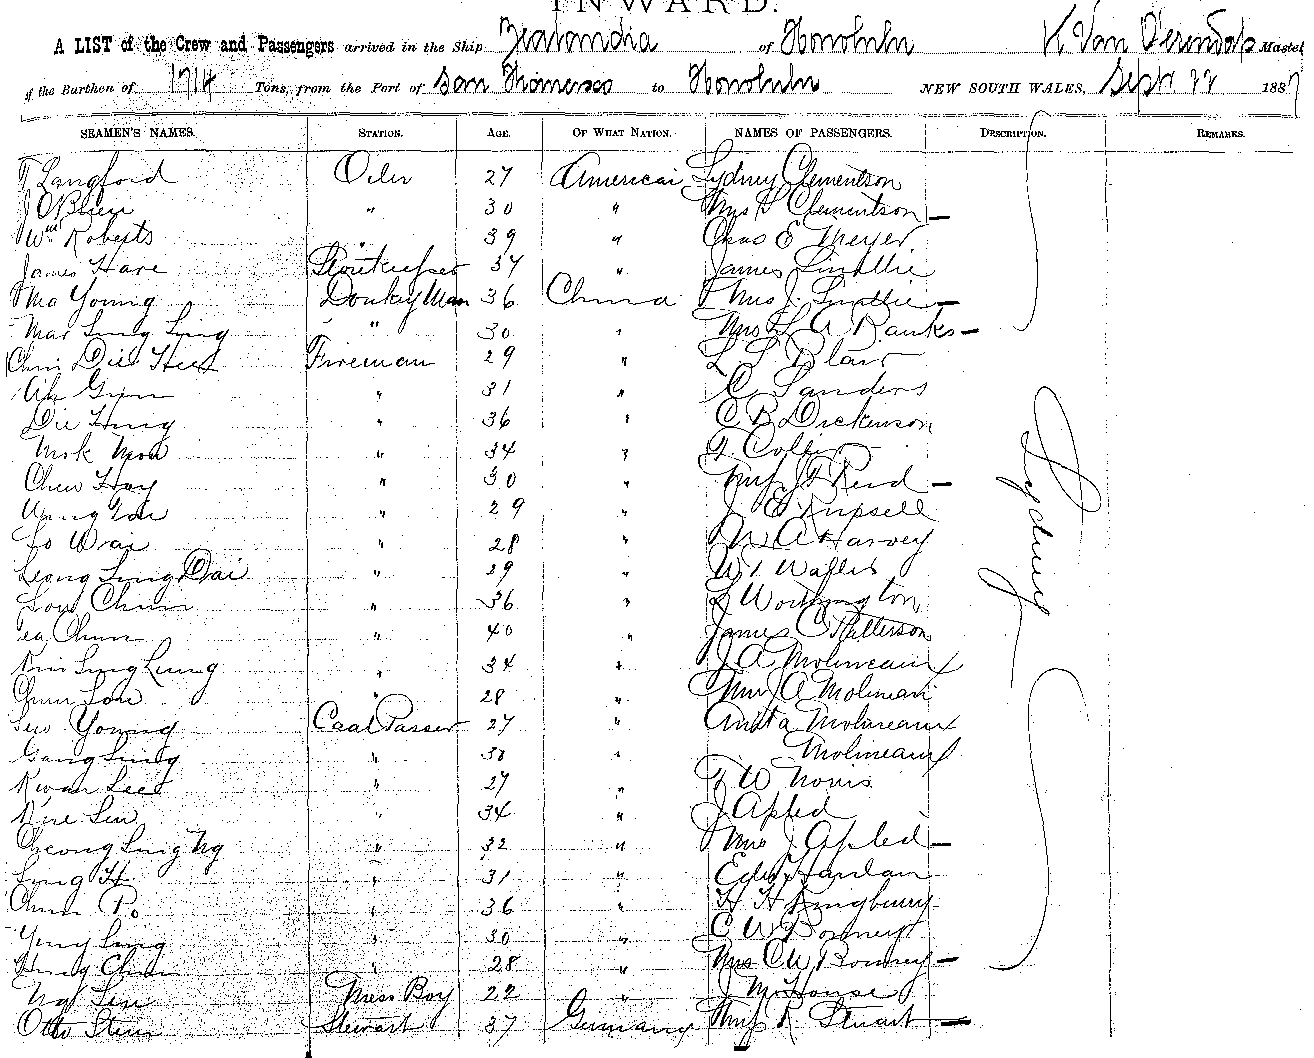 INWARD.
A LIST of the Crew and Passengers arrived in the Ship Zealandia of Honolulu K Van Master
of the Burthen of Tons, from the Port of San Francisco to Honolulu NEW SOUTH WALES, Sept 22 1887
SEAMEN'S NAMES. STATION. AGE. OF WHAT NATION. NAMES OF PASSENGERS. DESCRIPTION. REMARKS.
T Langford Oiler 27 American Sydney Clementson
J OBrien " 30 " Mrs S Clementson —
Wm Roberts " 39 " Chas E Meyer
James Hare Storekeeper 37 " James Smellie
Ma Young Donkey Man 36 China Mrs J. Smellie —
Mar Sing Ling " 30 " Mrs L A Banks —
Die Fireman 29 " L L Blair
Ah Gim " 31 " C Sanders
Die Hing " 36 " C B Dickinson
Mok Mon " 34 " F Collin
Chew Hoy " 30 " Miss Reid —
" 29 " J E Russell
Lo Wai " 28 " M A Harvey
Leong Sing Dai " 29 " W Wallis
Low Chun " 36 " L Worthington
Chun " 40 " James C Patterson
Sing Lung " 34 " J A Molineaux
Chun Lou " 28 " Mrs J A Molineaux
Young Coal Passer 27 " Anita Molineaux
Gang Sing " 30 " Molineaux
Kwan Lee " 27 " F W Norris
Lin " 34 " J Apled
Cheong Sing Ng " 32 " Mrs J. Apled —
Sing H " 31 " Edw Hanlan
Chun Po " 36 " H H Kingbury
Ying Sing " 30 " C W Bonney
Hing Chun " 28 " Mrs C W Bonney —
Ng Mess Boy 22 " J M House
Otto Stein Stewart 37 Germany Miss Stuart —
Sydney